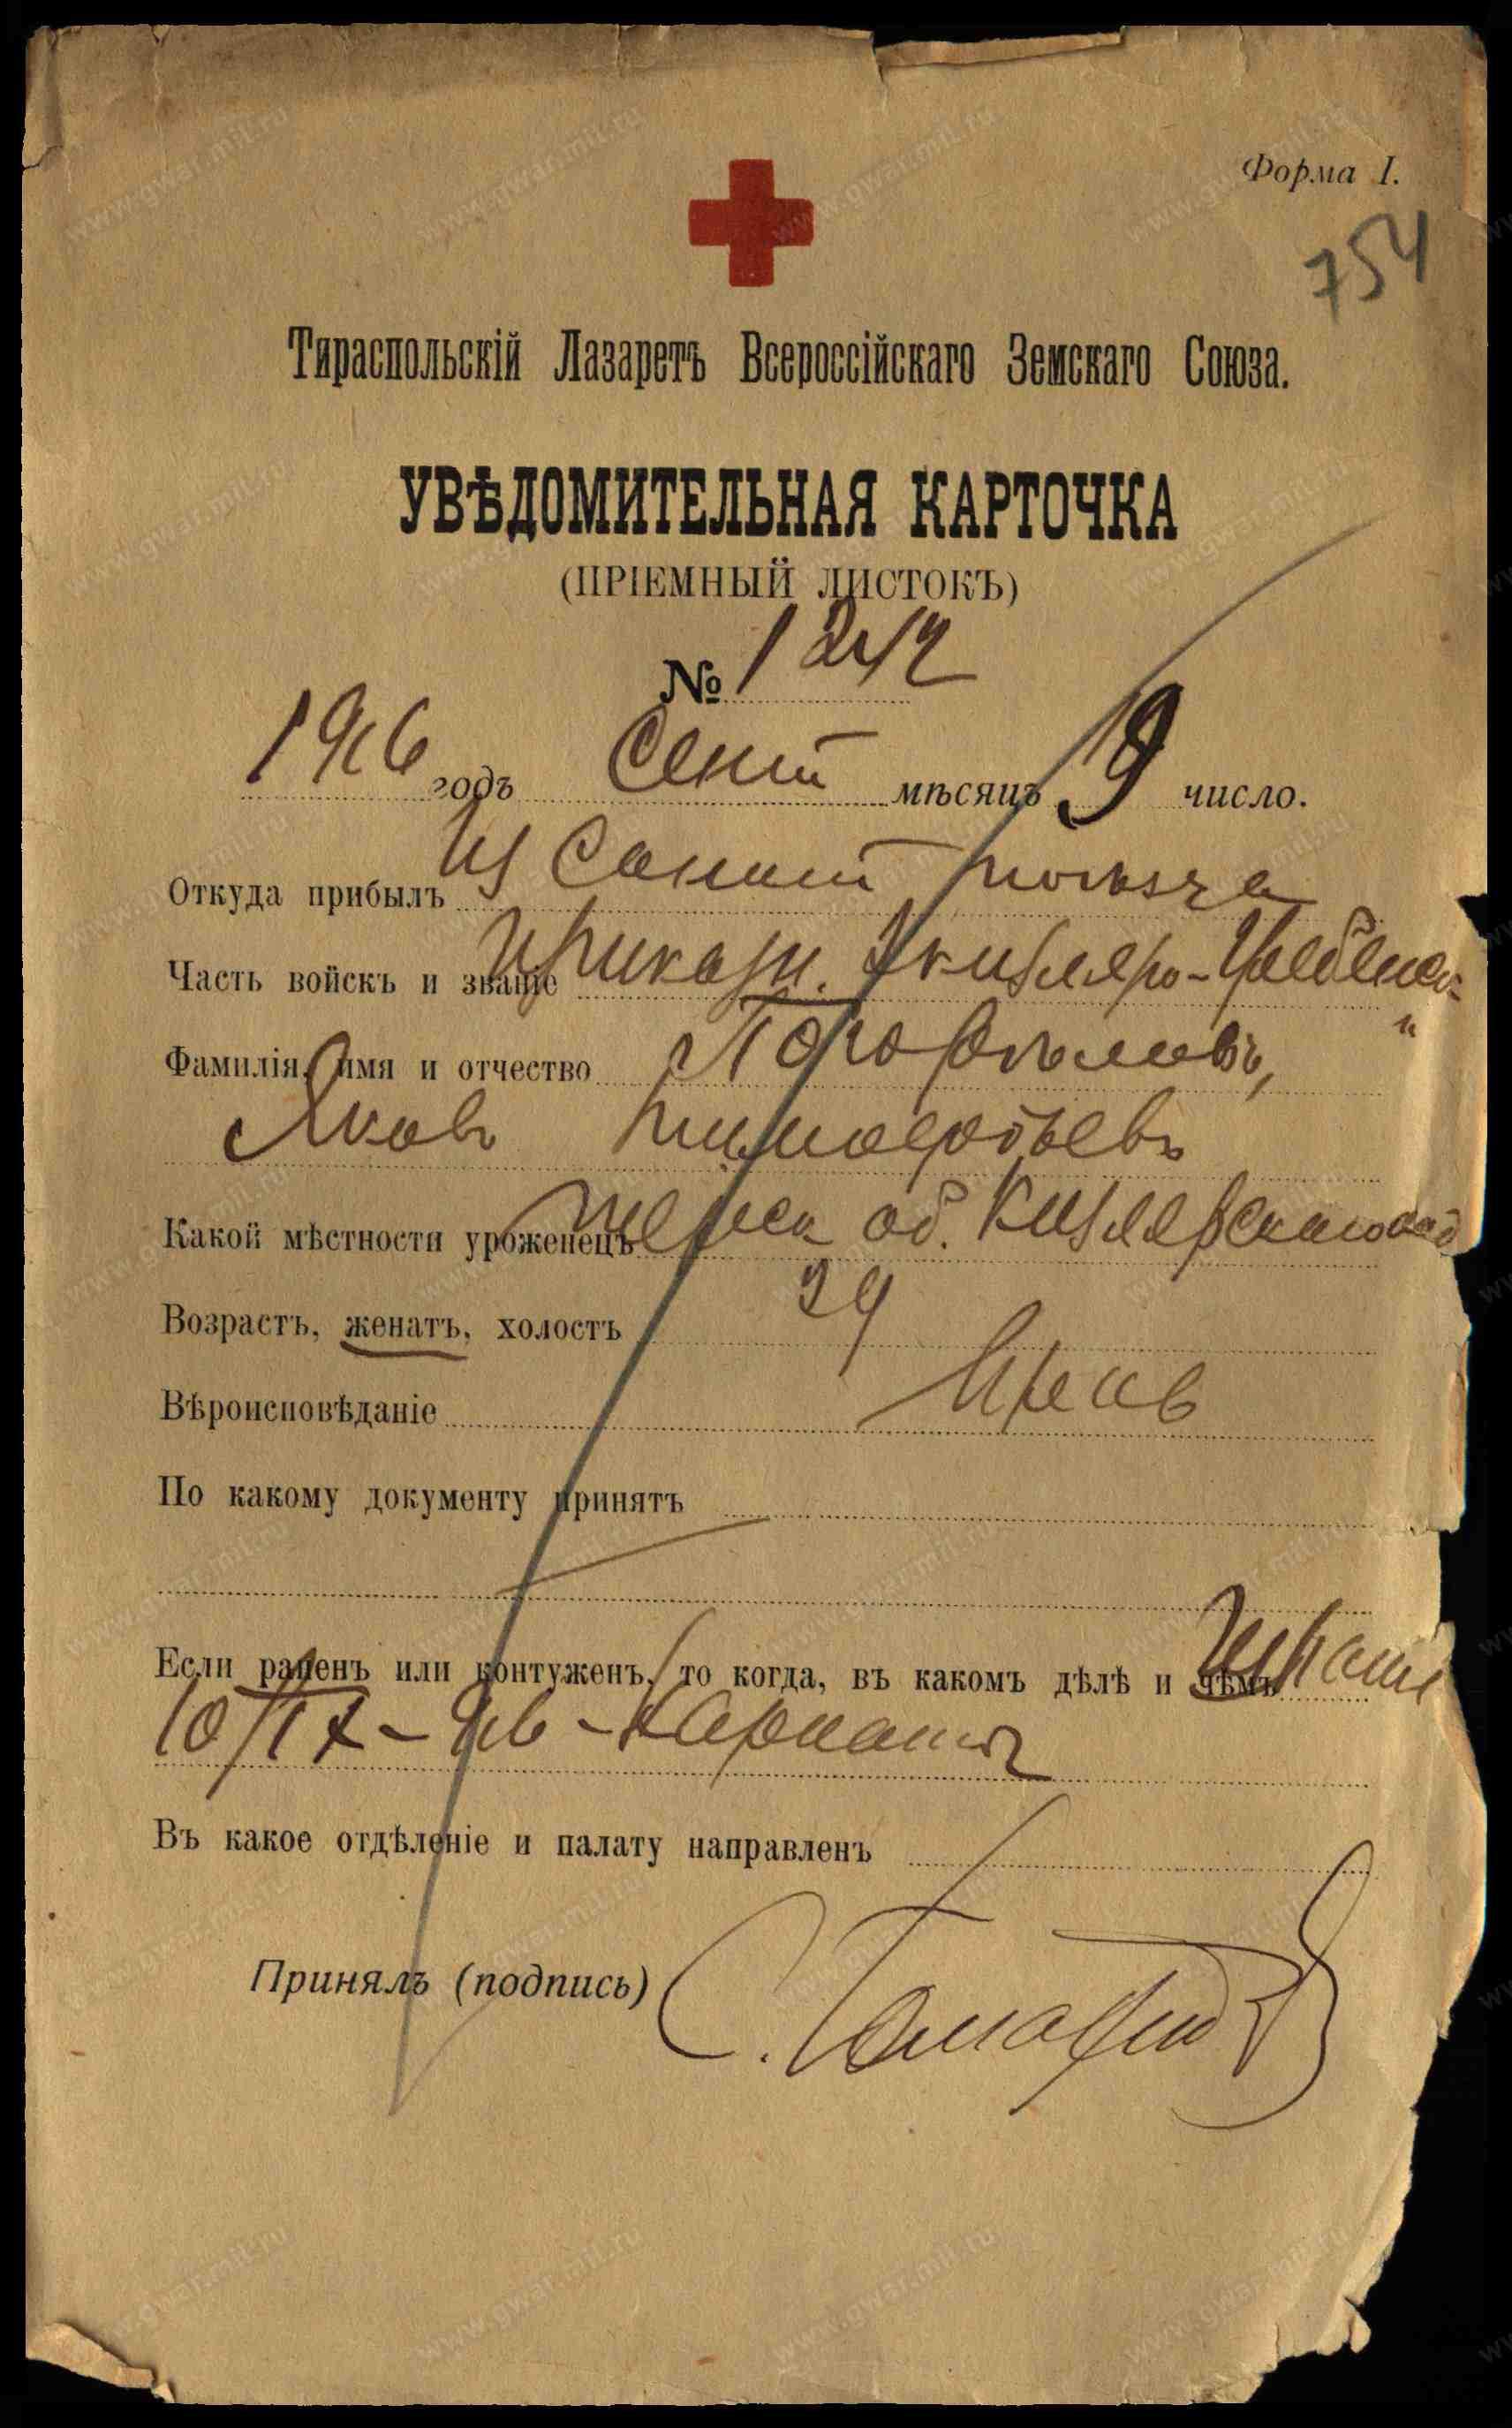 Форма I.
754
Тираспольскій Лазаретъ Всероссійскаго Земскаго Союза.
УВѢДОМИТЕЛЬНАЯ КАРТОЧКА
(ПРІЕМНЫЙ ЛИСТОКЪ)
№ 1242
1916 годъ Сент мѣсяцъ 19 число.
Откуда прибылъ Из Санит поѣзда
Часть войскъ и званіе Приказн. Кизляро-Гребенск
Фамилія, имя и отчество
Яковъ Тимофѣевъ
Какой мѣстности уроженецъ Терск об. Кизлярскаго
Возрастъ, женатъ, холостъ 34
Вѣроисповѣданіе
По какому документу принятъ
Если раненъ или контуженъ, то когда, въ какомъ дѣлѣ и чѣмъ
10/IX - 16 - Карпаты
Въ какое отдѣленіе и палату направленъ
Принялъ (подпись)